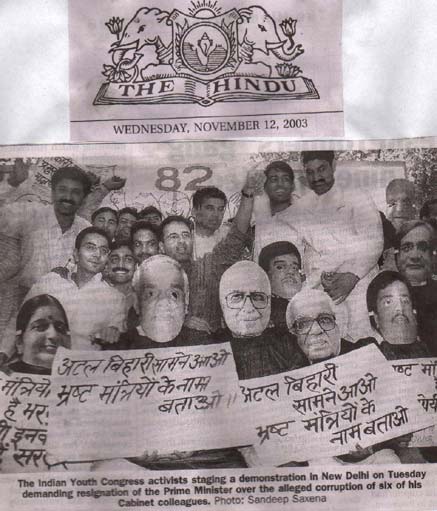 THE HINDU
WEDNESDAY, NOVEMBER 12, 2003
82
अटल बिहारी सामने आओ
भ्रष्ट मंत्रियों के नाम
बताओ।।
अटल बिहारी
सामने आओ
भ्रष्ट मंत्रियों के
नाम बताओ
The Indian Youth Congress activists staging a demonstration in New Delhi on Tuesday
demanding resignation of the Prime Minister over the alleged corruption of six of his
Cabinet colleagues. Photo: Sandeep Saxena